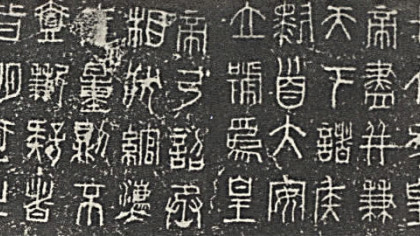 帝盡并兼
天下諸侯
黔首大安
立號為皇
帝乃詔丞
相狀綰灋
度量則不
壹歉疑者
皆明壹之